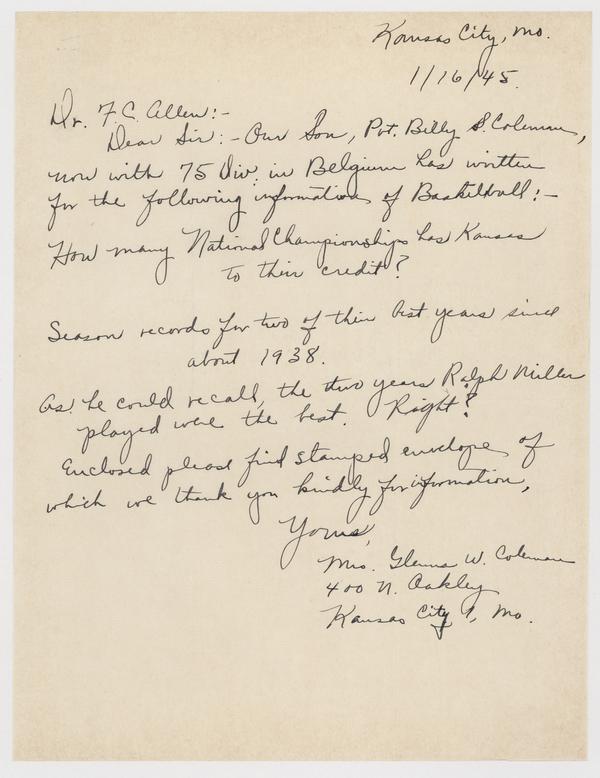 Kansas City, Mo.
1/16/45.
Dr. F. C. Allen:-
Dear Sir:- Our Son, Pvt. Billy S. Coleman,
now with 75 Div. in Belgium has written
for the following information of Basketball:-
How many National Championships has Kansas
to their credit?
Season records for two of their best years since
about 1938.
As he could recall, the two years Ralph Miller
played were the best. Right?
Enclosed please find stamped envelope of
which we thank you kindly for information,
Yours,
Mrs. Glenna W. Coleman
400 N. Oakley
Kansas City 1, Mo.